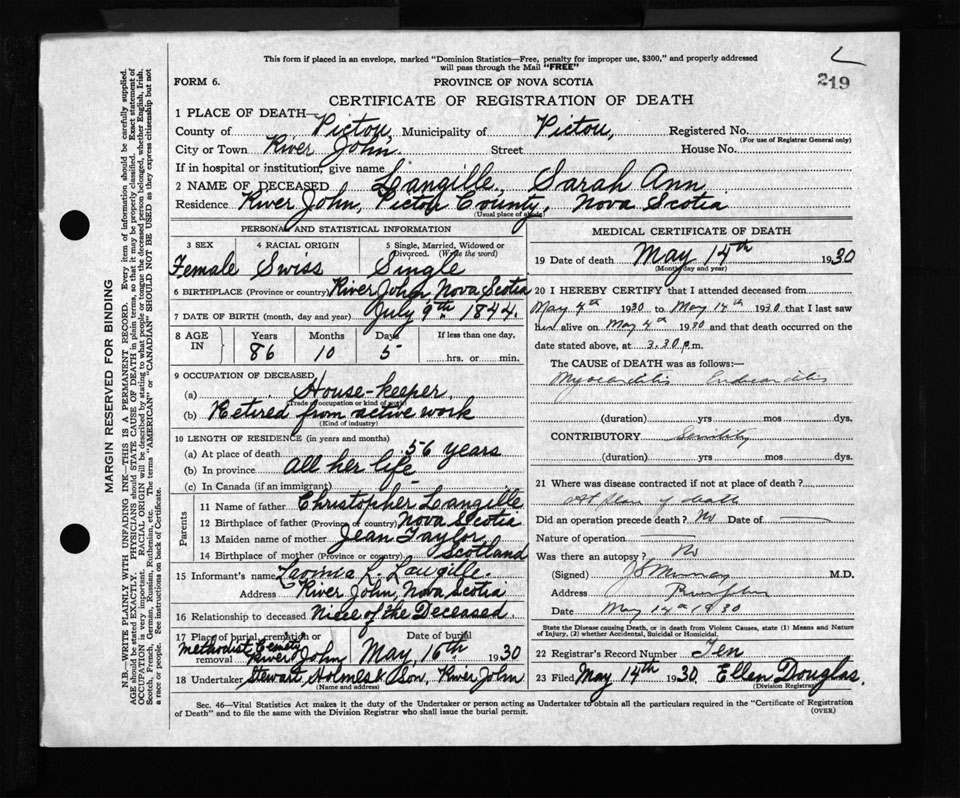 This form if placed in an envelope, marked "Dominion Statistics—Free, penalty for improper use, $300," and properly addressed
will pass through the Mail "FREE"
219
FORM 6.
PROVINCE OF NOVA SCOTIA
CERTIFICATE OF REGISTRATION OF DEATH
1 PLACE OF DEATH—
County of Pictou, Municipality of Pictou, Registered No.
(For use of Registrar General only)
City or Town River John. Street House No.
If in hospital or institution, give name
2 NAME OF DECEASED Langille, Sarah Ann
Residence River John, Pictou County, Nova Scotia
(Usual place of abode)
PERSONAL AND STATISTICAL INFORMATION
3 SEX 4 RACIAL ORIGIN 5 Single, Married, Widowed or Divorced. (Write the word)
Female Swiss Single
6 BIRTHPLACE (Province or country) River John, Nova Scotia
7 DATE OF BIRTH (month, day and year) July 9th 1844.
8 AGE IN Years Months Days If less than one day.
86 10 5 hrs. or min.
9 OCCUPATION OF DECEASED
(a) House-keeper.
(Trade of occupation or kind of work)
(b) Retired from active work
(Kind of industry)
10 LENGTH OF RESIDENCE (in years and months)
(a) At place of death 56 years
(b) In province all her life
(c) In Canada (if an immigrant)
Parents
11 Name of father Christopher Langille
12 Birthplace of father (Province or country) Nova Scotia
13 Maiden name of mother Jean Taylor
14 Birthplace of mother (Province or country) Scotland
15 Informant's name Lavinia L. Langille.
Address River John, Nova Scotia
16 Relationship to deceased Niece of the Deceased.
17 Place of burial, cremation or removal Methodist River John
Date of burial May, 16th 1930
18 Undertaker Stewart, Holmes & Son, River John
(Name and address)
MEDICAL CERTIFICATE OF DEATH
19 Date of death May 14th 1930
(Month, day and year)
20 I HEREBY CERTIFY that I attended deceased from
May 4th 1930 to May 14th 1930 that I last saw
her alive on May 4th 1930 and that death occurred on the
date stated above, at 3.30 p.m.
The CAUSE OF DEATH was as follows:—
Myocarditis Endocarditis
(duration) yrs mos dys.
CONTRIBUTORY Senility
(duration) yrs mos dys.
21 Where was disease contracted if not at place of death?
At place of death
Did an operation precede death? No Date of
Nature of operation
Was there an autopsy? No
(Signed) Murray M.D.
Address River John
Date May 14th 1930
State the Disease causing Death, or in death from Violent Causes, state (1) Means and Nature of Injury, (2) whether Accidental, Suicidal or Homicidal.
22 Registrar's Record Number Ten
23 Filed May 14th 1930 Ellen Douglas.
(Division Registrar)
Sec. 46—Vital Statistics Act makes it the duty of the Undertaker or person acting as Undertaker to obtain all the particulars required in the "Certificate of Registration
of Death" and to file the same with the Division Registrar who shall issue the burial permit.
(OVER)
MARGIN RESERVED FOR BINDING
N.B.—WRITE PLAINLY WITH UNFADING INK—THIS IS A PERMANENT RECORD. Every item of information should be carefully supplied.
AGE should be stated EXACTLY. PHYSICIANS should STATE CAUSE OF DEATH in plain terms, so that it may be properly classified. Exact statement of
OCCUPATION is very important. RACIAL ORIGIN will be described by stating to what people or tongue the deceased person belonged, whether English, Irish,
Scotch, French, German, Russian, Ruthenian, etc. The terms "AMERICAN" or "CANADIAN" SHOULD NOT BE USED as they express citizenship but not
a race or people. See instructions on back of Certificate.